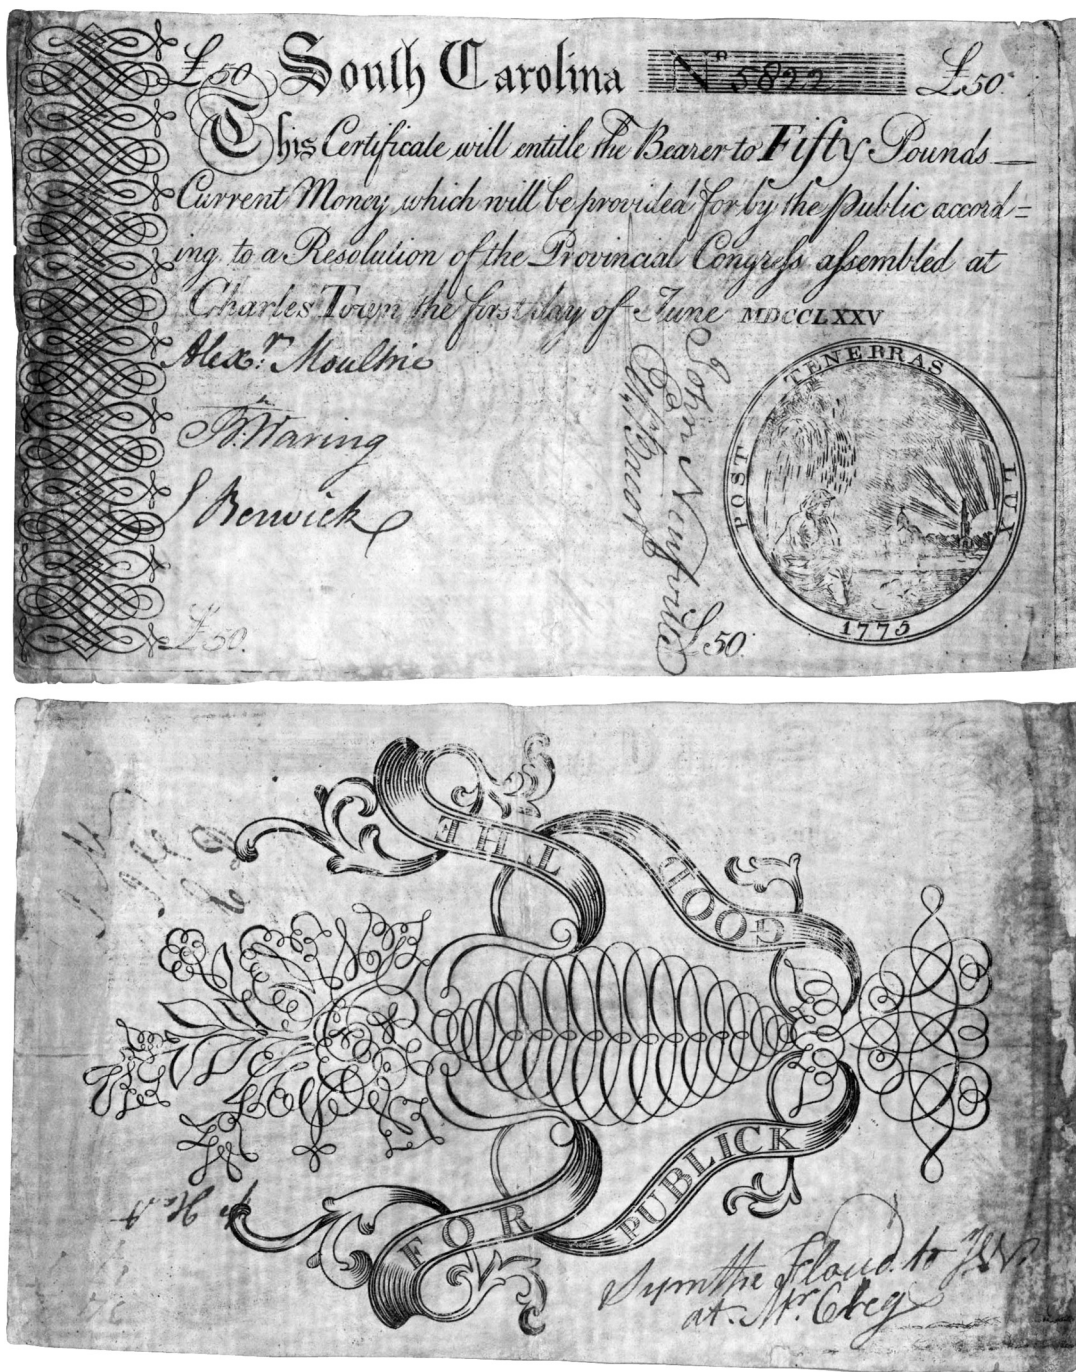 £50 South Carolina No 5822 £50
This Certificate will entitle the Bearer to Fifty Pounds
Current Money, which will be provided for by the Public accord=
ing to a Resolution of the Provincial Congress assembled at
Charles Town the first day of June MDCCLXXV
Alexr. Moultrie
Waring
Berwick
John Neufville
POST TENEBRAS LUX
1775
£50.
£50.
FOR THE
PUBLICK GOOD
Floud to
at Mr.